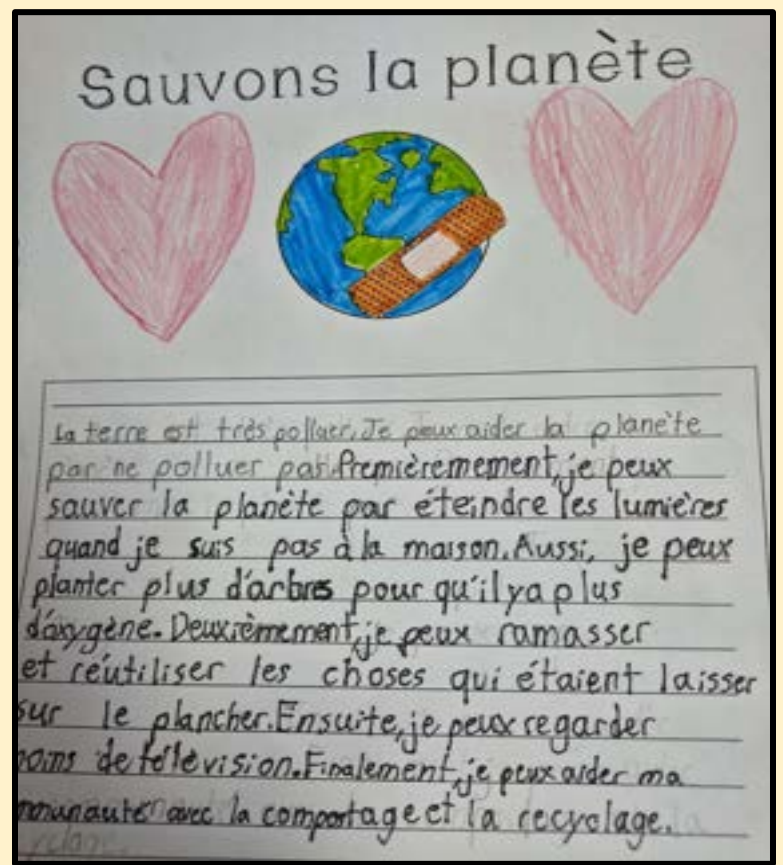 Sauvons la planète
La terre est très polluer. Je peux aider la planète
par ne polluer pas. Premièremement, je peux
sauver la planète par éteindre les lumières
quand je suis pas à la maison. Aussi, je peux
planter plus d'arbres pour qu'il y a plus
d'oxygène. Deuxièmement, je peux ramasser
et réutiliser les choses qui étaient laisser
sur le plancher. Ensuite, je peux regarder
oins de télévision. Finalement, je peux aider ma
mmunauté avec la compostage et la recyclage.